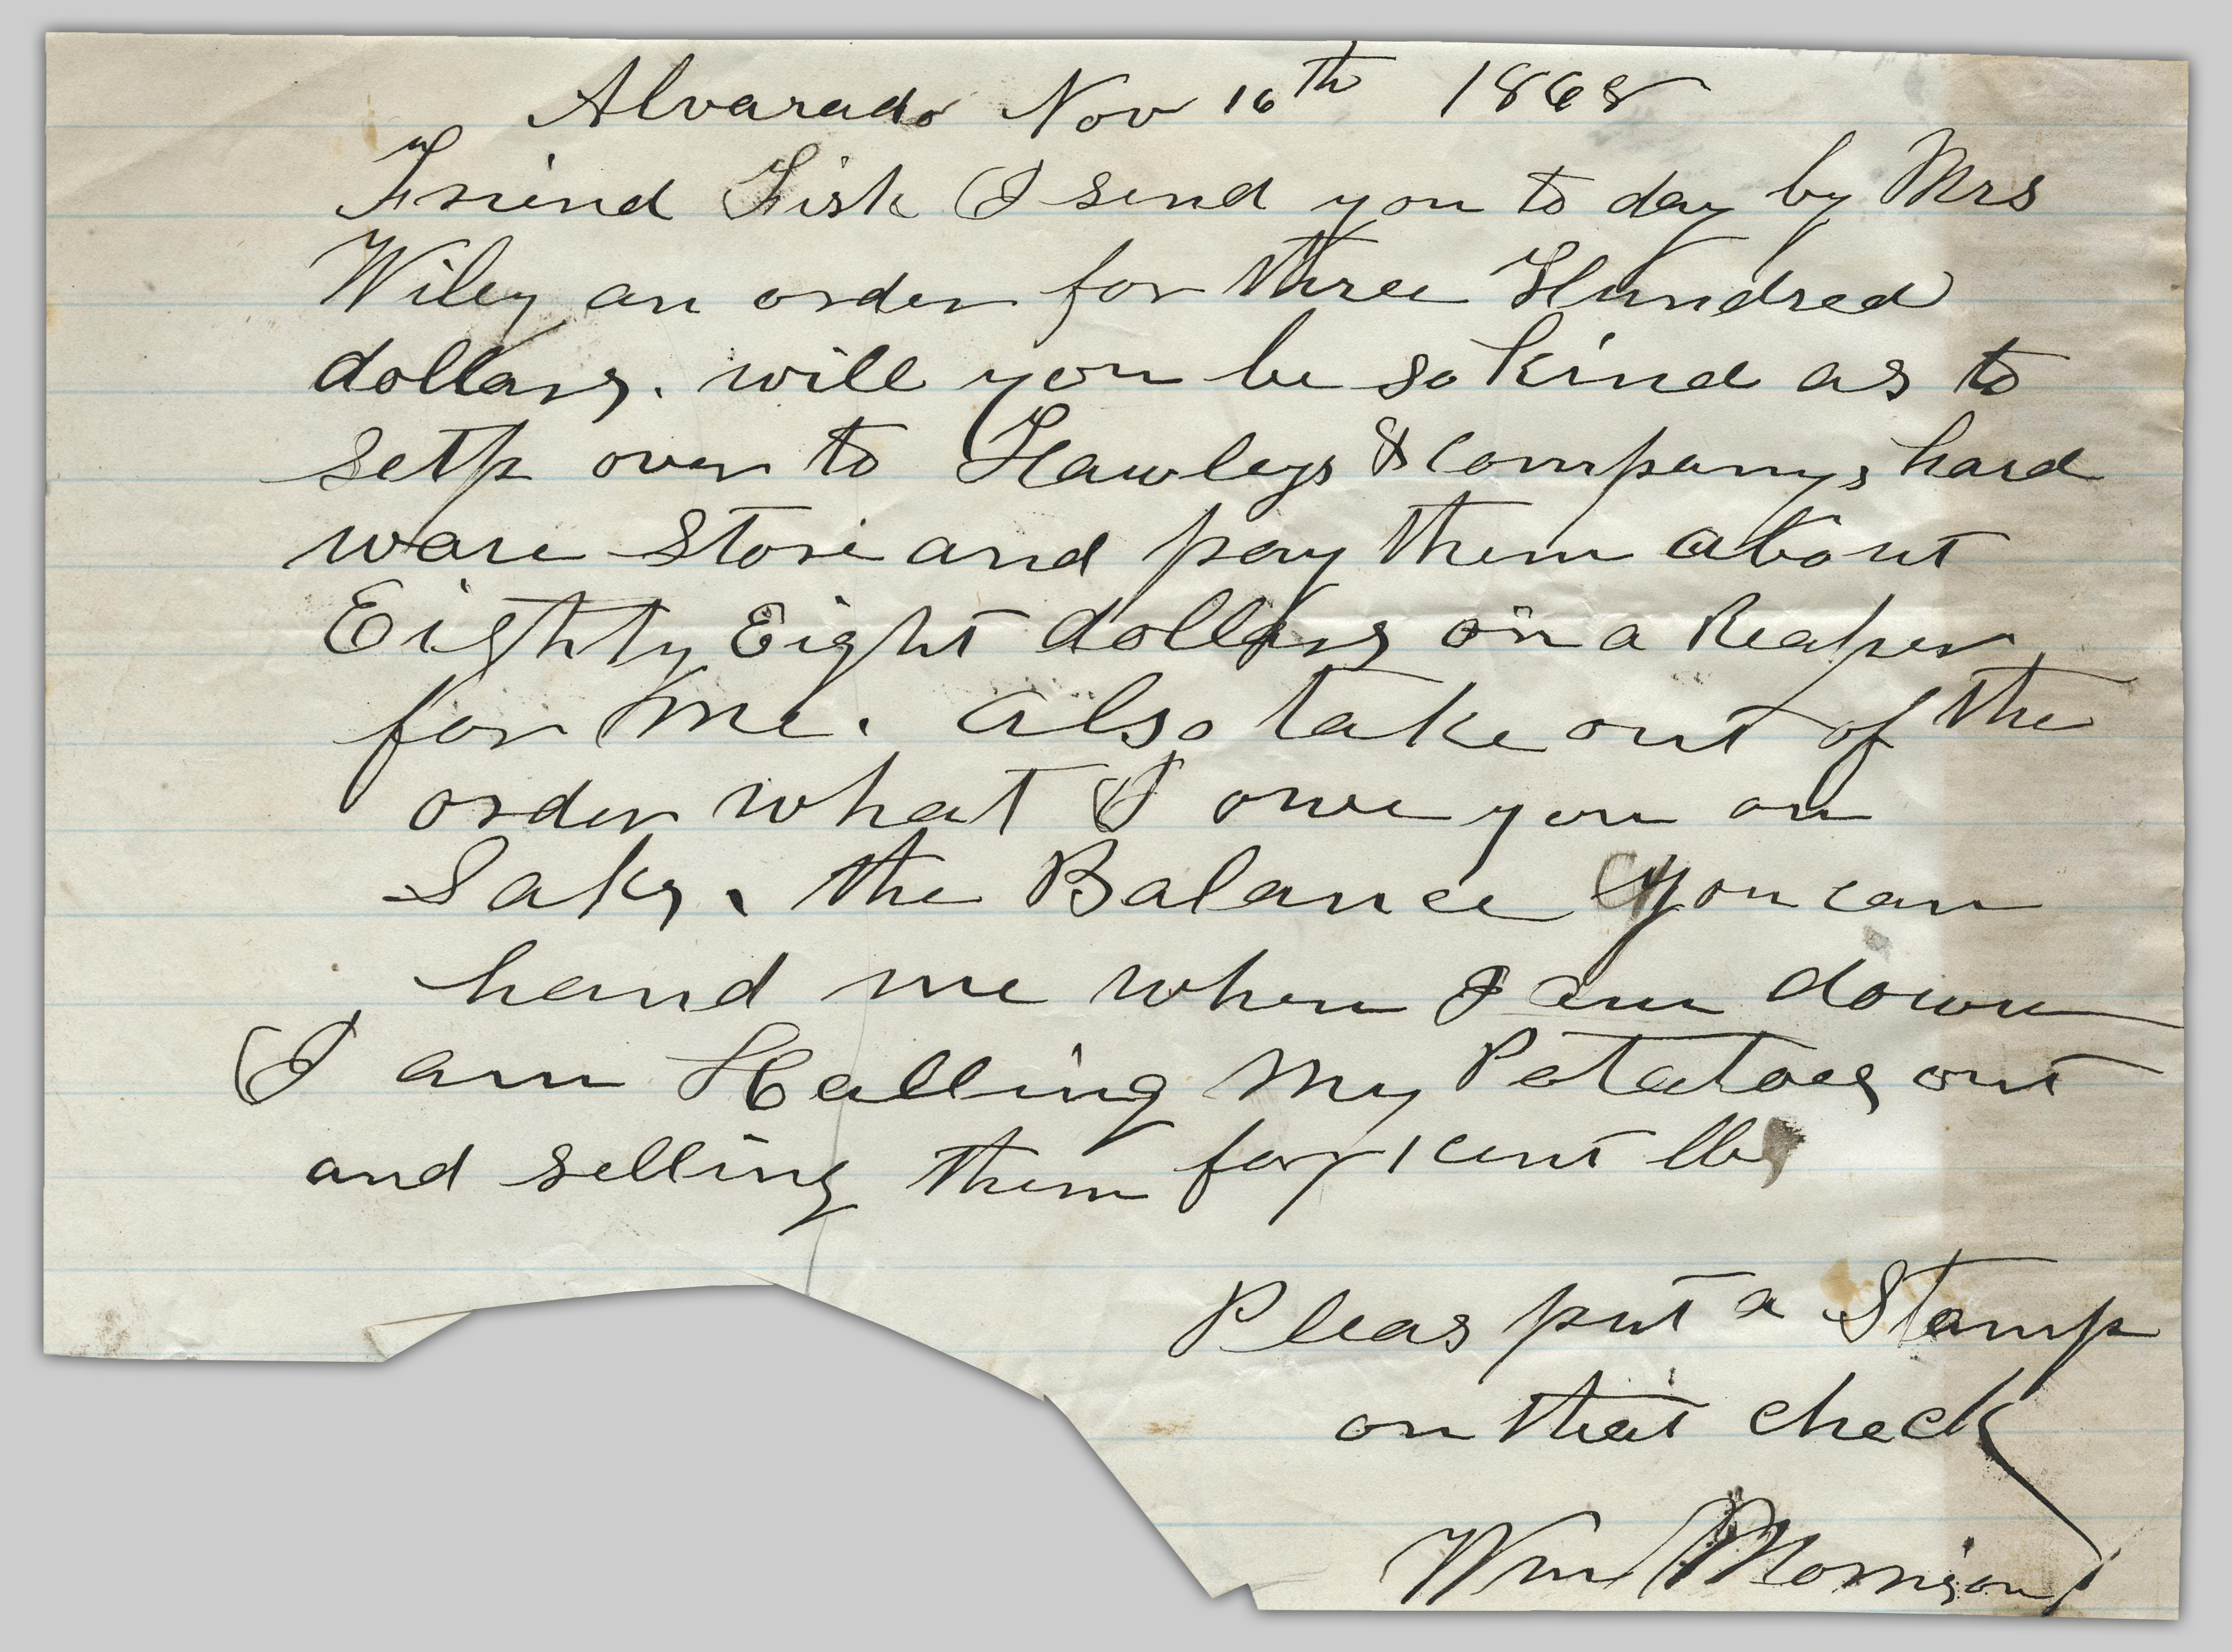 Alvarado Nov 16th 1868
Friend Fisk I send you to day by Mrs
Wiley an order for three Hundred
dollars. will you be so kind as to
setp over to Hawleys & Companys hard
ware store and pay them about
Eighty Eight dollars on a Reaper
for me. also take out of the
order what I owe you on
Saks. the Balance you can
hand me when I am down
I am Halling my Potatoes out
and selling them for 1 cent lb
Pleas put a Stamp
on that check
Wm Morrison